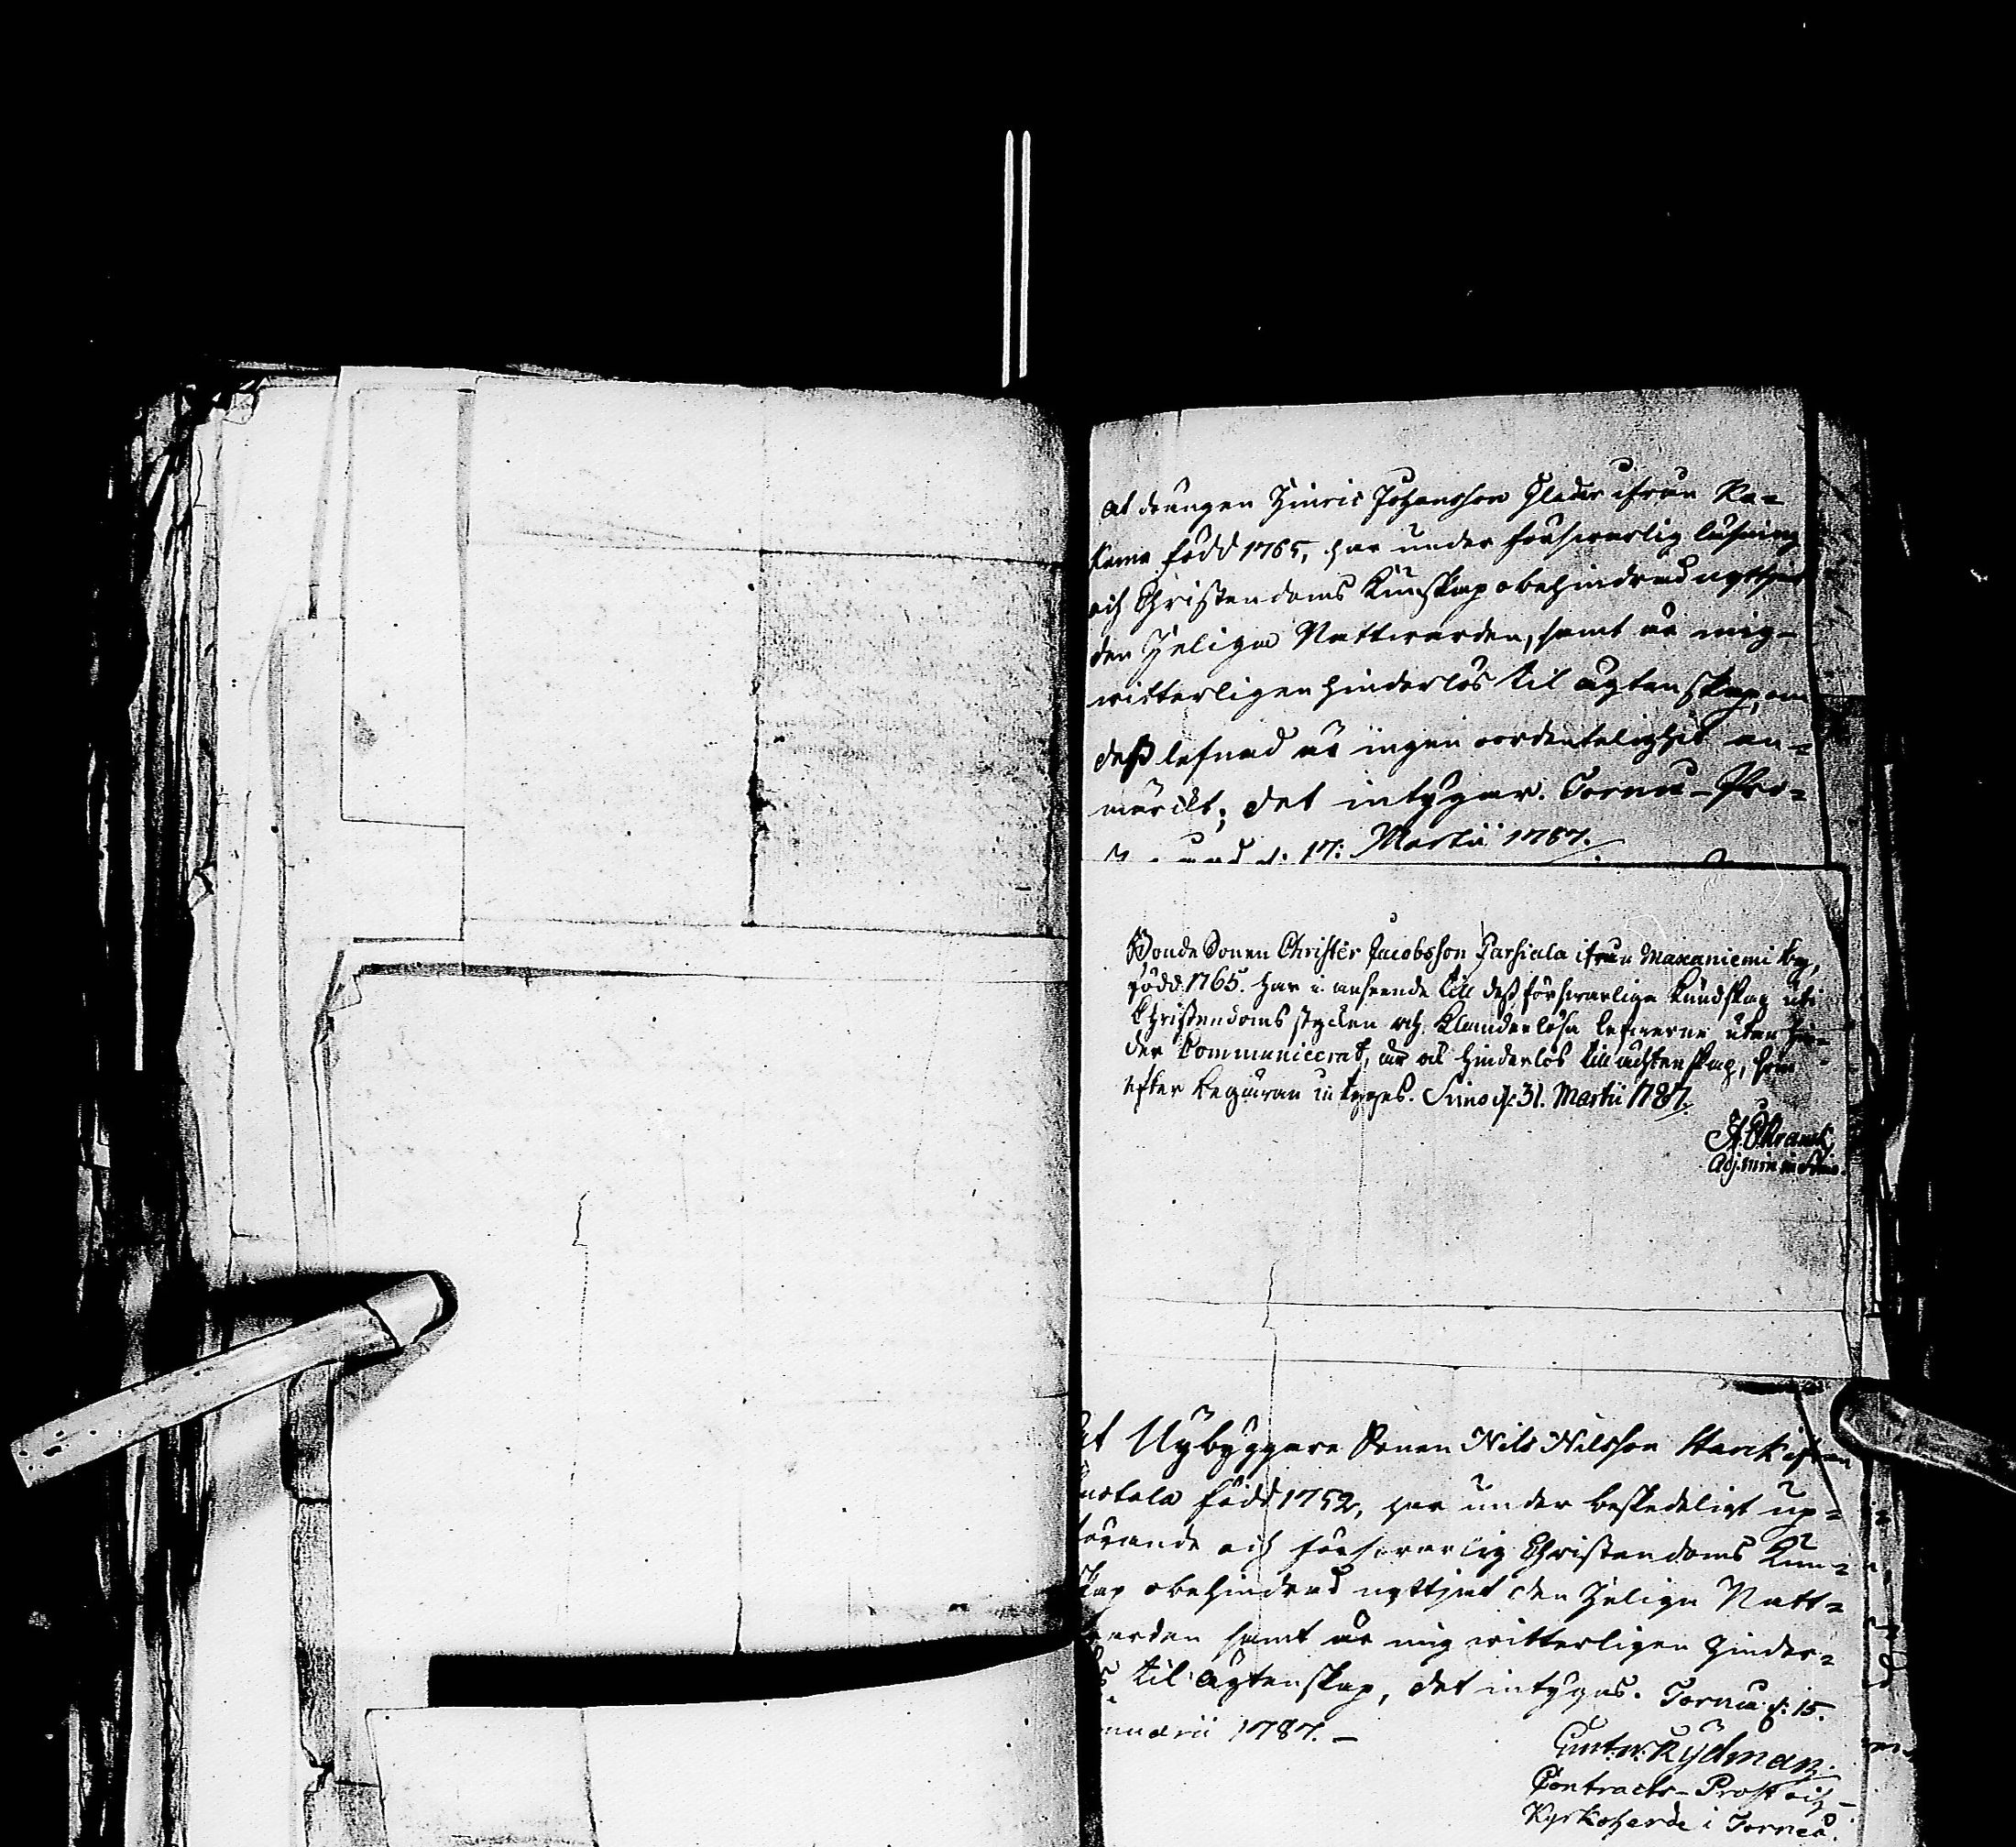 at drängen Hinric Johansson Glader ifrån Ka-
kama född 1765, har under försvarlig läsning
och Christendoms Kunskap obehindrad nyttjat
den Heliga Nattwarden, samt är mig-
witterligen hinderlös til ägtenskap, om
deß lefnad är ingen oordentelighet an-
märckt; det intygar. Torneå-Prä-
d. 17. Martii 1787.
BondeSonen Christer Jacobsson Parsiala ifrån Maxaniemi by,
född 1765. har i anseende till deß försvarliga Kundskap uti
Christendoms stycken och Klanderlösa lefverne utan hin-
der Communicerat, är ock hinderlös till ächtenskap, som
efter begäran intyges. Simo d. 31. Martii 1787.
Adj. min. in Simo.
at Nybyggare Sonen Nils Nilsson Starck ifrån
född 1752, har under beskedeligt up-
förande och försvarlig Christendoms Kun-
skap obehindrad nyttjat den Heliga Natt-
warden samt är mig witterligen hinder-
lös til Ägtenskap, det intygas. Torneå d. 15.
Januarii 1787. –
Rydman
Contracts-Prost och
Kyrkoherde i Torneå.